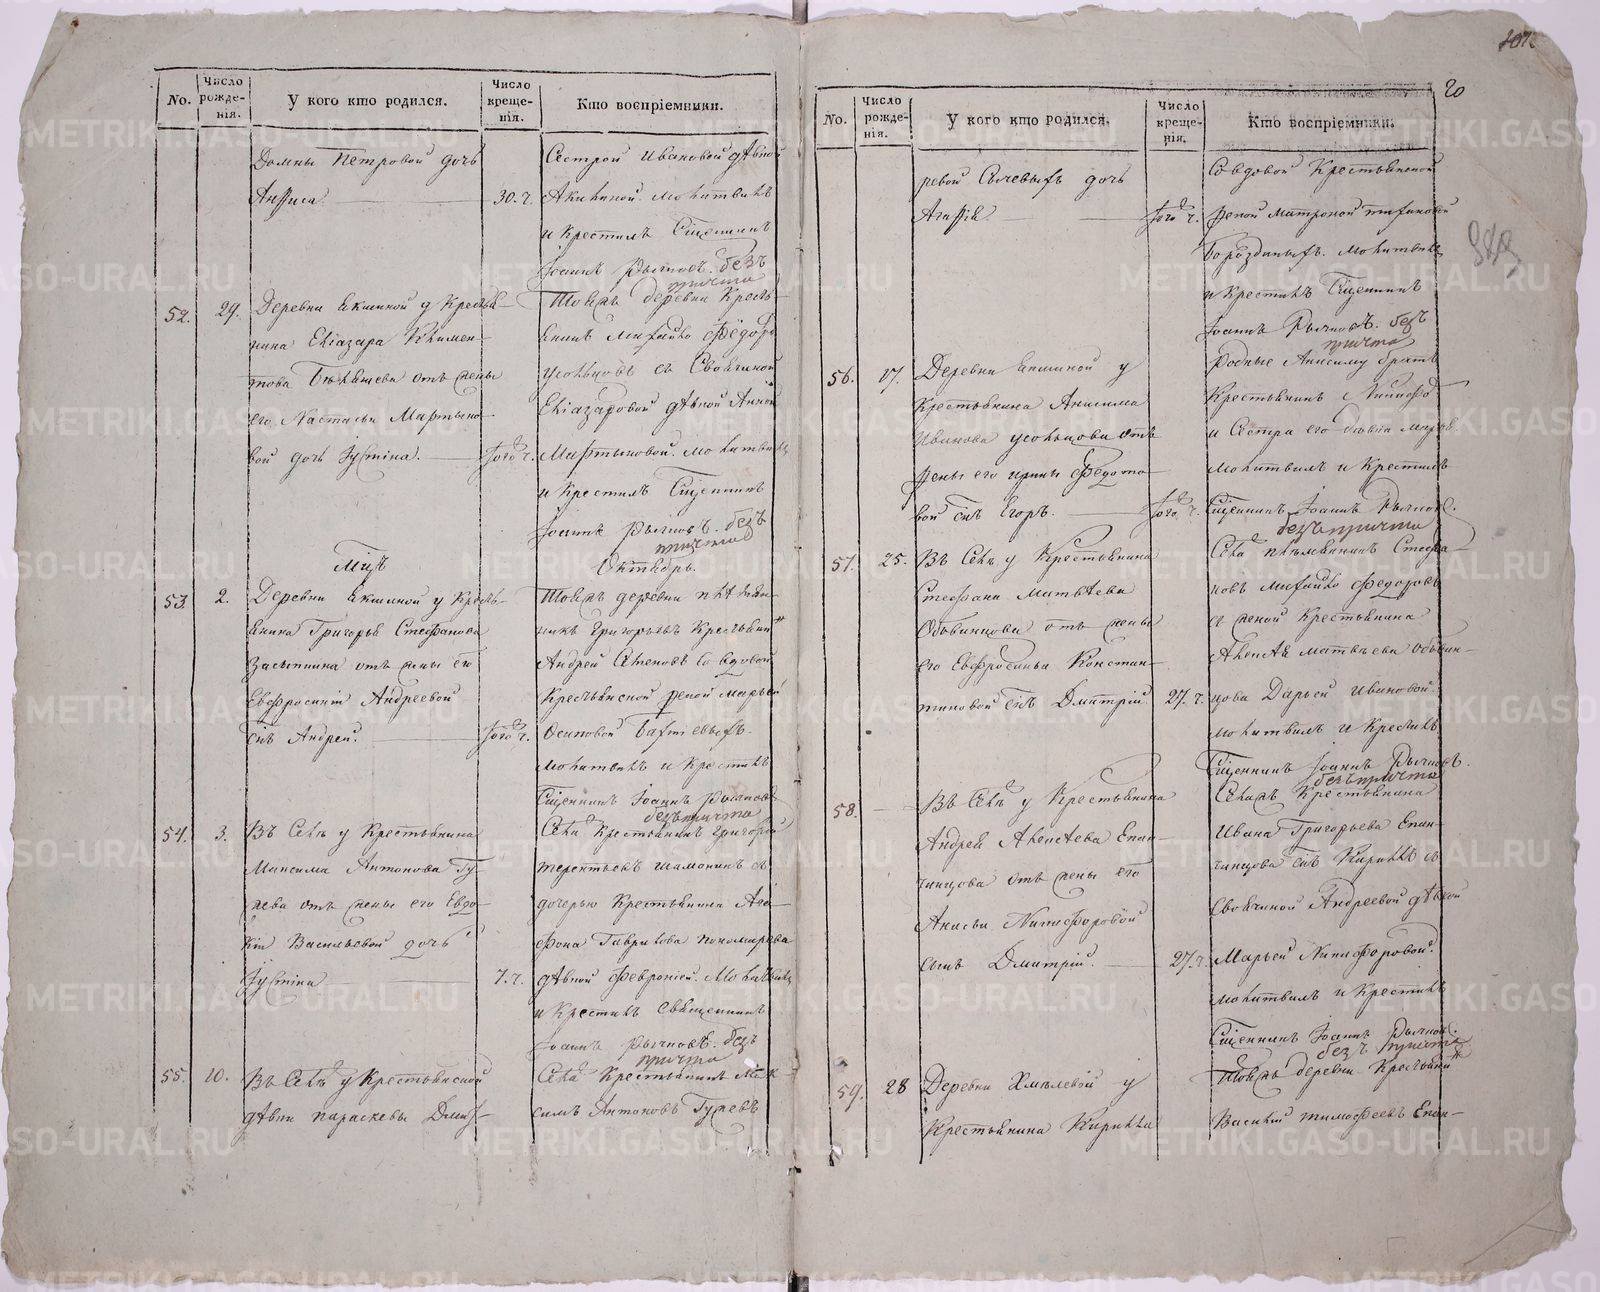 No.
Число рожде-нія.
У кого кто родился.
Число креще-нія.
Кто воспріемники.
Домны Петровой дочь
Анфиса
30. ч.
Сестрой Ивановой дѣвкой
Акилиной. Молитвилъ
и крестилъ Сщенникъ
Іоаннъ Рычковъ. безъ
причта
52.
29.
Деревни Екшиной у Крестья-
нина Еліазара Климен-
това от жены
его Настасьи Мартыно-
вой дочь Іустина.
того ч.
Тояжъ деревни Кресть-
янинъ Михайло Федоръ
Усольцовъ съ Своячиной
Еліазаровой дѣвкой Анной
Мартыновой. Молитвилъ
и крестилъ Сщенникъ
Іоаннъ Рычковъ. безъ
причта
Мцъ
Октябрь.
53.
2.
Деревни Екшиной у Кресть-
янина Григорья Стефанова
Засыпкина отъ жены его
Евфросиніи Андреевой
снъ Андрей.
того ч.
Тояжъ деревни племян-
никъ Григорьевъ Крестьянинъ
Андрей Семеновъ со вдовой
Крестьянской женой Марьей
Осиповой
Молитвилъ и крестилъ
Сщенникъ Іоаннъ Рычковъ
безъ причта
54.
3.
Въ Селѣ у Крестьянина
Максима Антонова Гу-
лева отъ жены его Евдо-
кіи Васильевой дочь
Іустина
7. ч.
Села Крестьянинъ Григорей
Терентьевъ Шамонинъ съ
дочерью Крестьянина Ага-
фона Гаврилова Пономарева
дѣвкой Февроніей. Молитвилъ
и крестилъ Священникъ
Іоаннъ Рычковъ. безъ
причта
55.
10.
Въ Селѣ у Крестьянской
дѣвки Параскевы Дмит-
Села Крестьянинъ Мак
симъ Антоновъ Гулевъ
107
20
No.
Число рожде-нія.
У кого кто родился.
Число креще-нія.
Кто воспріемники.
ревой Сычевыхъ дочь
Агафія
того ч.
Со вдовой Крестьянской
женой Матроной Тихановой
Бороздиныхъ. Молитвилъ
и крестилъ Сщенникъ
Іоаннъ Рычковъ. безъ
причта
56.
17.
Деревни Екшиной у
Крестьянина Анисима
Иванова Усольцова отъ
жены его Ирины Федото-
вой снъ Егоръ.
того ч.
Родные Анисиму братъ
Крестьянинъ
и Сестра его дѣвка Марья
Молитвилъ и Крестилъ
Сщенникъ Іоаннъ Рычковъ.
безъ причта
57.
25.
Въ Селѣ у Крестьянина
Стефана Матвѣева
Обвинцова отъ жены
его Евфросиньи Констан-
тиновой снъ Дмитрій
27. ч.
Села племянникъ Стефа-
новъ Михайло Федоровъ
съ женой Крестьянина
Алексѣя Матвѣева Обвин-
цова Дарьей Ивановой.
Молитвилъ и крестилъ
Сщенникъ Іоаннъ Рычковъ.
безъ причта
58.
Въ Селѣ у Крестьянина
Андрея Алексѣева Епан-
чинцова отъ жены его
Анасьи Никифоровой
сынъ Дмитрій.
27. ч.
Села Крестьянина
Ивана Григорьева Епан-
чинцова снъ Кирилъ съ
Своячиной Андреевой дѣвкой
Марьей Никифоровой.
Молитвилъ и крестилъ
Сщенникъ Іоаннъ Рычковъ.
безъ причта
59.
28
Деревни Хмѣлевой у
Крестьянина Кирилла
Тояжъ деревни Крестьянинъ
Василій Тимофеевъ Епан-